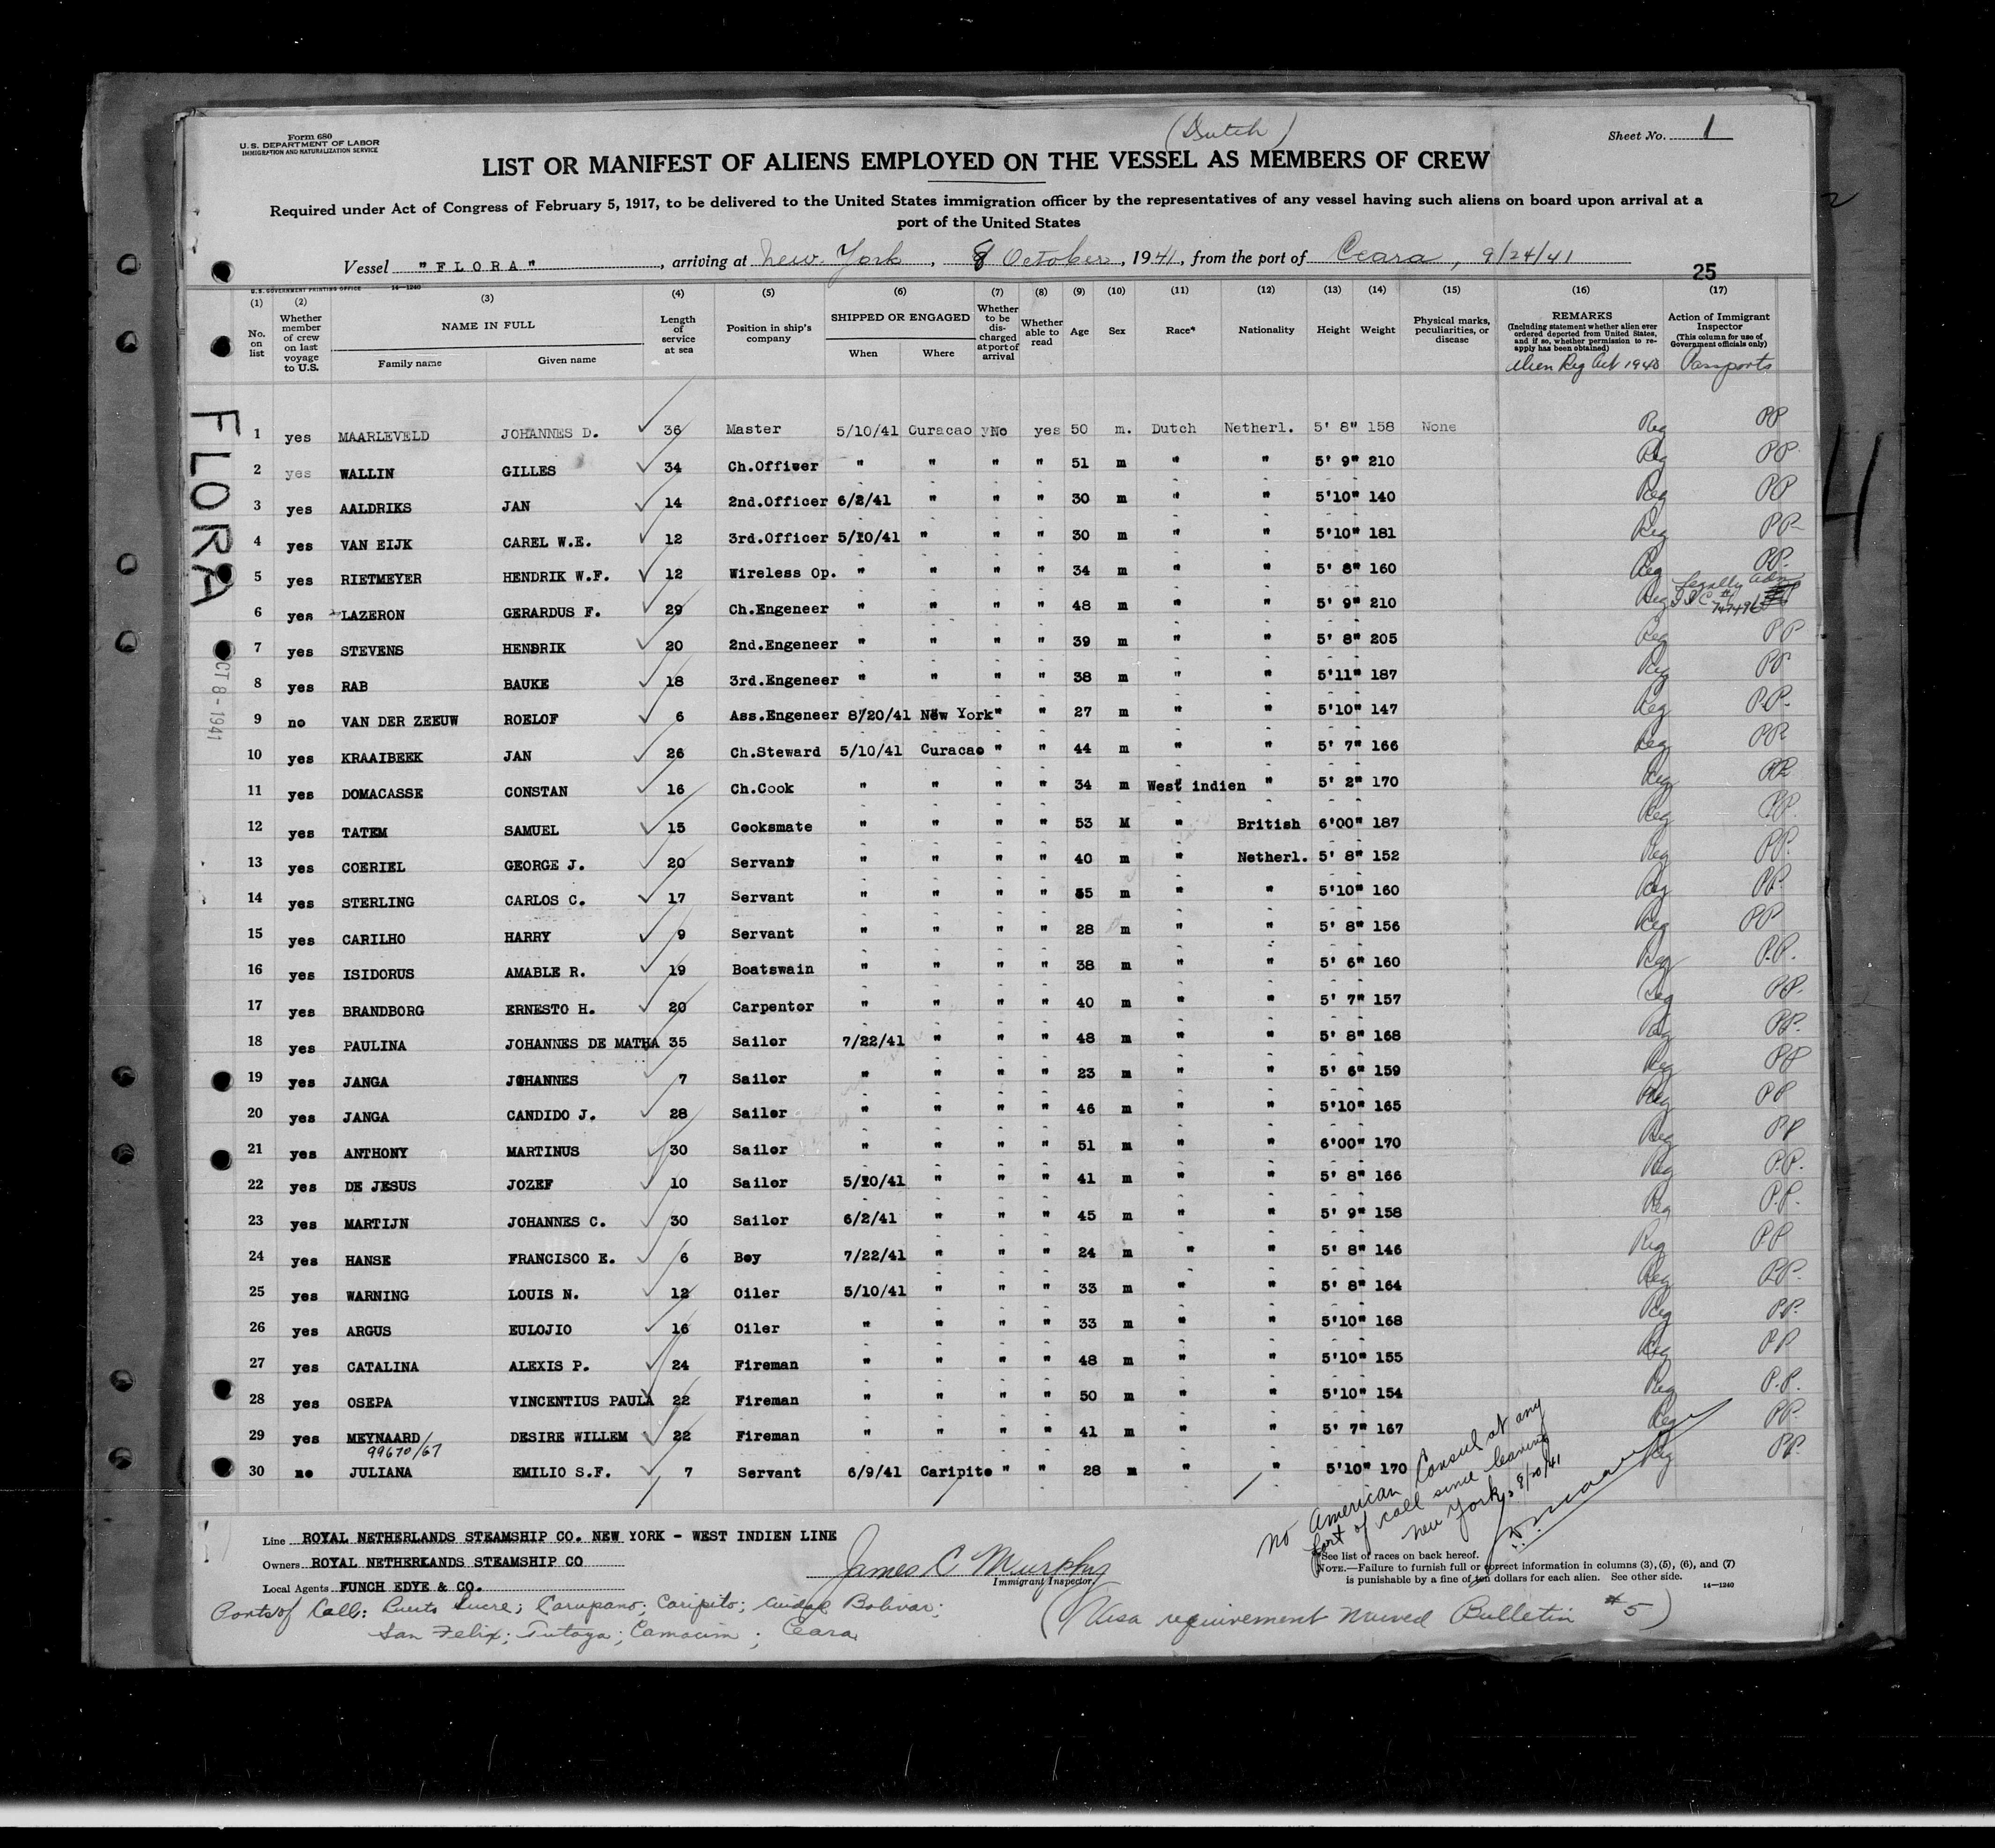 (Dutch)
Form 680
U. S. DEPARTMENT OF LABOR
IMMIGRATION AND NATURALIZATION SERVICE
Sheet No. 1
LIST OR MANIFEST OF ALIENS EMPLOYED ON THE VESSEL AS MEMBERS OF CREW
Required under Act of Congress of February 5, 1917, to be delivered to the United States immigration officer by the representatives of any vessel having such aliens on board upon arrival at a
port of the United States
Vessel "FLORA", arriving at New York, 8 October, 1941, from the port of Ceara, 9/24/41
25
U. S. GOVERNMENT PRINTING OFFICE 14—1240
(1) No. on list (2) Whether member of crew on last voyage to U.S. (3) NAME IN FULL Family name Given name (4) Length of service at sea (5) Position in ship's company (6) SHIPPED OR ENGAGED When Where (7) Whether to be discharged at port of arrival (8) Whether able to read (9) Age (10) Sex (11) Race* (12) Nationality (13) Height (14) Weight (15) Physical marks, peculiarities, or disease (16) REMARKS (Including statement whether alien ever ordered deported from United States, and if so, whether permission to reapply has been obtained) Alien Reg Act 1940 (17) Action of Immigrant Inspector (This column for use of Government officials only) Passports
FLORA
OCT 8 - 1941
1 yes MAARLEVELD JOHANNES D. 36 Master 5/10/41 Curacao No yes 50 m. Dutch Netherl. 5' 8" 158 None Reg PP
2 yes WALLIN GILLES 34 Ch.Officer " " " " 51 m " " 5' 9" 210 Reg PP.
3 yes AALDRIKS JAN 14 2nd.Officer 6/2/41 " " " 30 m " " 5'10" 140 Reg PP
4 yes VAN EIJK CAREL W.E. 12 3rd.Officer 5/10/41 " " " 30 m " " 5'10" 181 Reg PP.
5 yes RIETMEYER HENDRIK W.F. 12 Wireless Op. " " " " 34 m " " 5' 8" 160 Reg PP.
6 yes LAZERON GERARDUS F. 29 Ch.Engeneer " " " " 48 m " " 5' 9" 210 Reg Legally adm
7 yes STEVENS HENDRIK 20 2nd.Engeneer " " " " 39 m " " 5' 8" 205 Reg PP
8 yes RAB BAUKE 18 3rd.Engeneer " " " " 38 m " " 5'11" 187 Reg PP
9 no VAN DER ZEEUW ROELOF 6 Ass.Engeneer 8/20/41 New York " " 27 m " " 5'10" 147 Reg P.P.
10 yes KRAAIBEEK JAN 26 Ch.Steward 5/10/41 Curacao " " 44 m " " 5' 7" 166 Reg PP
11 yes DOMACASSE CONSTAN 16 Ch.Cook " " " " 34 m West indien " 5' 2" 170 Reg PP
12 yes TATEM SAMUEL 15 Cooksmate " " " " 53 M " British 6'00" 187 Reg P.P.
13 yes COERIEL GEORGE J. 20 Servant " " " " 40 m " Netherl. 5' 8" 152 Reg PP.
14 yes STERLING CARLOS C. 17 Servant " " " " 35 m " " 5'10" 160 Reg PP.
15 yes CARILHO HARRY 9 Servant " " " " 28 m " " 5' 8" 156 Reg PP
16 yes ISIDORUS AMABLE R. 19 Boatswain " " " " 38 m " " 5' 6" 160 Reg P.P.
17 yes BRANDBORG ERNESTO H. 20 Carpenter " " " " 40 m " " 5' 7" 157 Reg PP.
18 yes PAULINA JOHANNES DE MATHA 35 Sailor 7/22/41 " " " 48 m " " 5' 8" 168 Reg PP.
19 yes JANGA JOHANNES 7 Sailor " " " " 23 m " " 5' 6" 159 Reg PP
20 yes JANGA CANDIDO J. 28 Sailor " " " " 46 m " " 5'10" 165 Reg PP
21 yes ANTHONY MARTINUS 30 Sailor " " " " 51 m " " 6'00" 170 Reg PP
22 yes DE JESUS JOZEF 10 Sailor 5/10/41 " " " 41 m " " 5' 8" 166 Reg P.P.
23 yes MARTIJN JOHANNES C. 30 Sailor 6/2/41 " " " 45 m " " 5' 9" 158 Reg P.P.
24 yes HANSE FRANCISCO E. 6 Boy 7/22/41 " " " 24 m " " 5' 8" 146 Reg PP
25 yes WARNING LOUIS N. 12 Oiler 5/10/41 " " " 33 m " " 5' 8" 164 Reg PP.
26 yes ARGUS EULOJIO 16 Oiler " " " " 33 m " " 5'10" 168 Reg PP.
27 yes CATALINA ALEXIS P. 24 Fireman " " " " 48 m " " 5'10" 155 Reg PP
28 yes OSEPA VINCENTIUS PAULA 22 Fireman " " " " 50 m " " 5'10" 154 Reg P.P.
29 yes MEYNAARD DESIRE WILLEM 22 Fireman " " " " 41 m " " 5' 7" 167 Reg PP.
99670/67
30 no JULIANA EMILIO S.F. 7 Servant 6/9/41 Caripito " " 28 m " " 5'10" 170 Reg PP.
No American Consul at any
port of call since leaving
New York, 8/20/41
Line ROYAL NETHERLANDS STEAMSHIP CO. NEW YORK - WEST INDIEN LINE
Owners ROYAL NETHERLANDS STEAMSHIP CO
Local Agents FUNCH EDYE & CO.
James C Murphy
Immigrant Inspector
*See list of races on back hereof.
NOTE.—Failure to furnish full or correct information in columns (3), (5), (6), and (7)
is punishable by a fine of ten dollars for each alien. See other side. 14—1240
Ports of Call: Puerto Sucre; Carupano; Caripito; Ciudad Bolivar;
San Felix; Tutoya; Camocim; Ceara
(Visa requirement waived Bulletin #5)
4